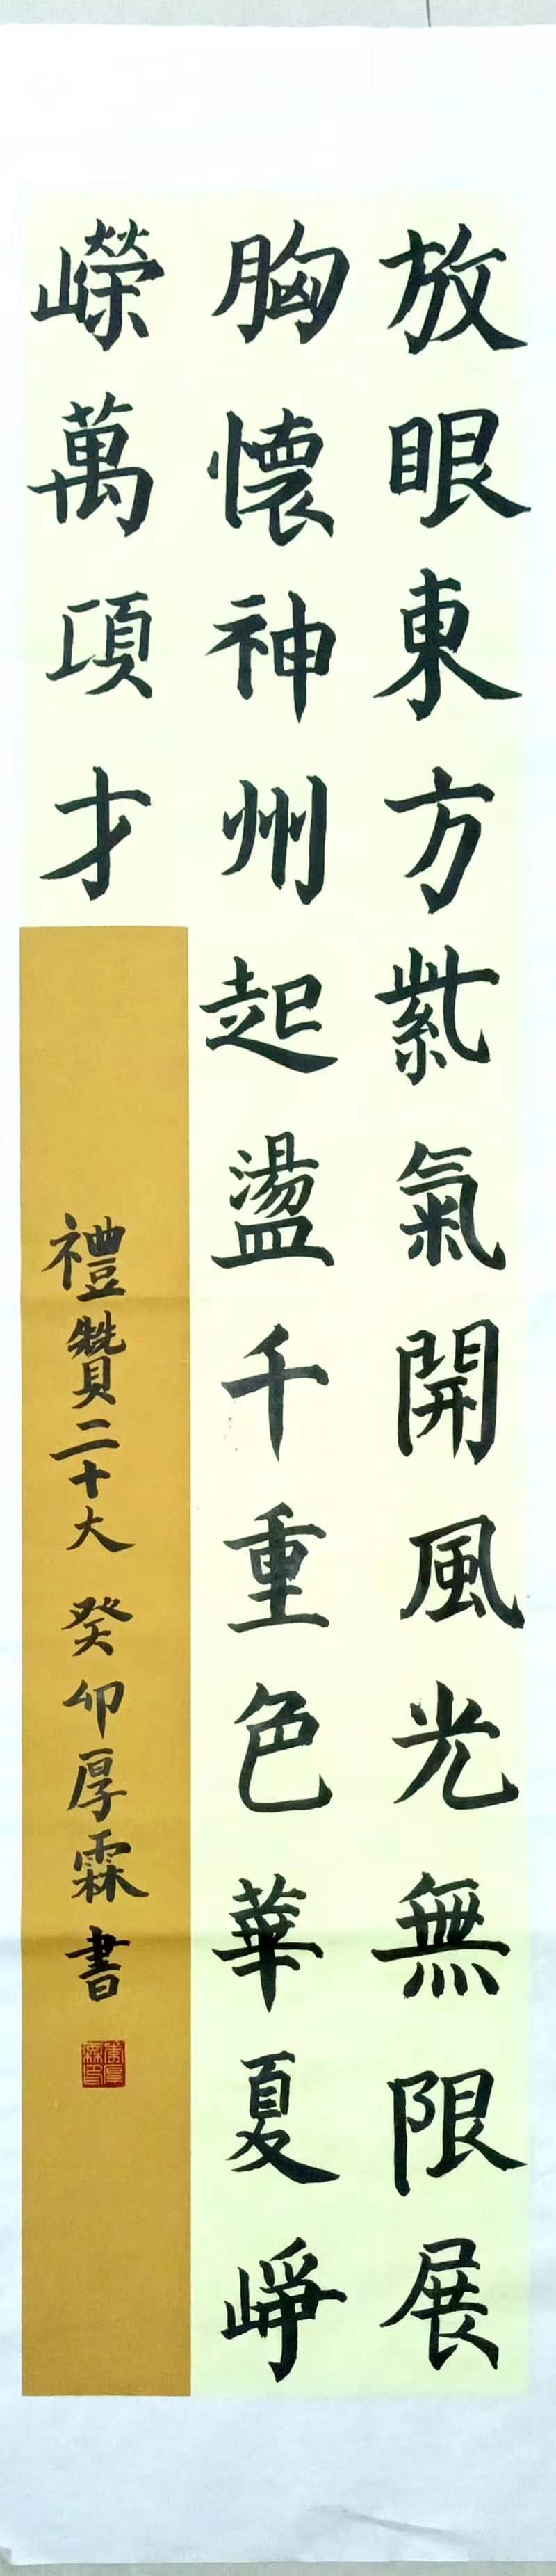 放眼東方紫氣開風光無限展
胸懷神州起盪千重色華夏崢
嶸萬項才
禮贊二十大 癸卯厚霖書